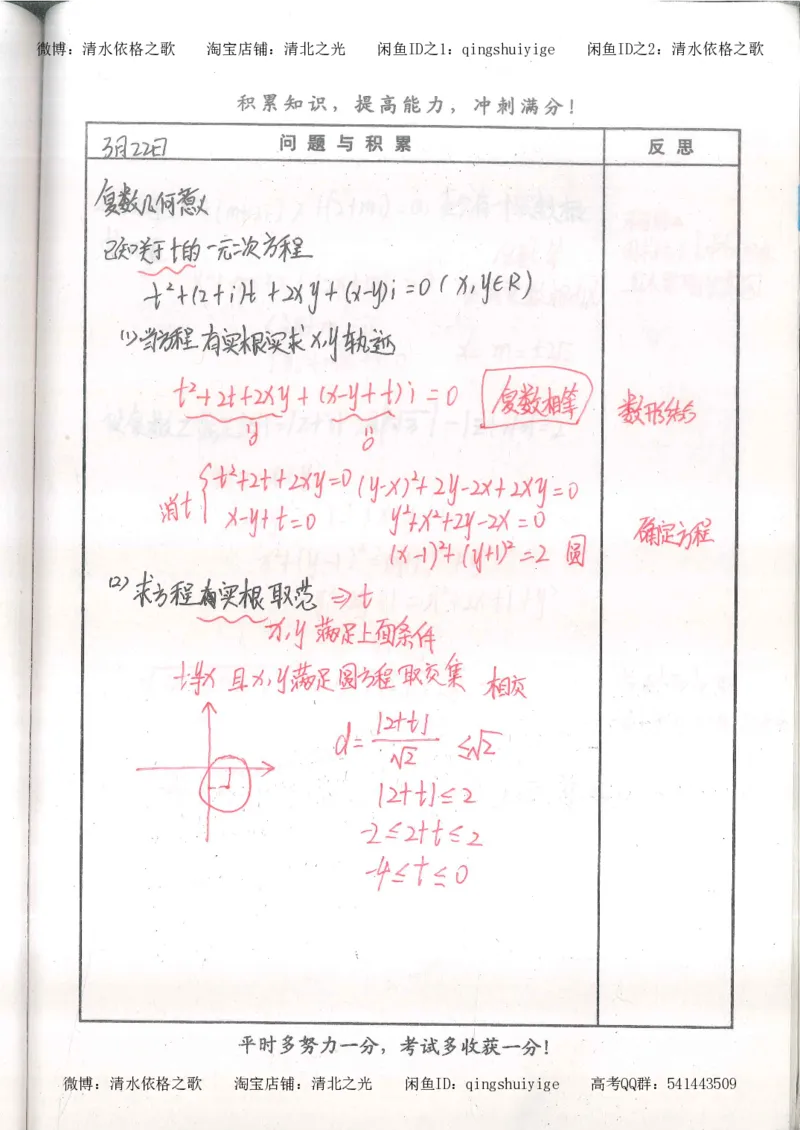 微博：清水依格之歌 淘宝店铺：清北之光 闲鱼ID之1：qingshuiyige 闲鱼ID之2：清水依格之歌
积累知识，提高能力，冲刺满分！
3月22日 问题与积累 反思
复数几何意义
已知关于t的一元二次方程
t²+(2+i)t+2xy+(x-y)i=0(x,y∈R)
(1)当方程有实根实求x,y轨迹
t²+2t+2xy+(x-y+t)i=0 复数相等 数形结合
0 0
消t { t²+2t+2xy=0 (y-x)²+2y-2x+2xy=0
x-y+t=0 y²+x²+2y-2x=0 确定方程
(x-1)²+(y+1)²=2 圆
(2)求方程有实根取范 ⇒t
x,y满足上面条件
且x,y满足圆方程取交集 相交
d=|2+t|/√2 ≤√2
|2+t|≤2
-2≤2+t≤2
-4≤t≤0
平时多努力一分，考试多收获一分！
微博：清水依格之歌 淘宝店铺：清北之光 闲鱼ID：qingshuiyige 高考QQ群：541443509